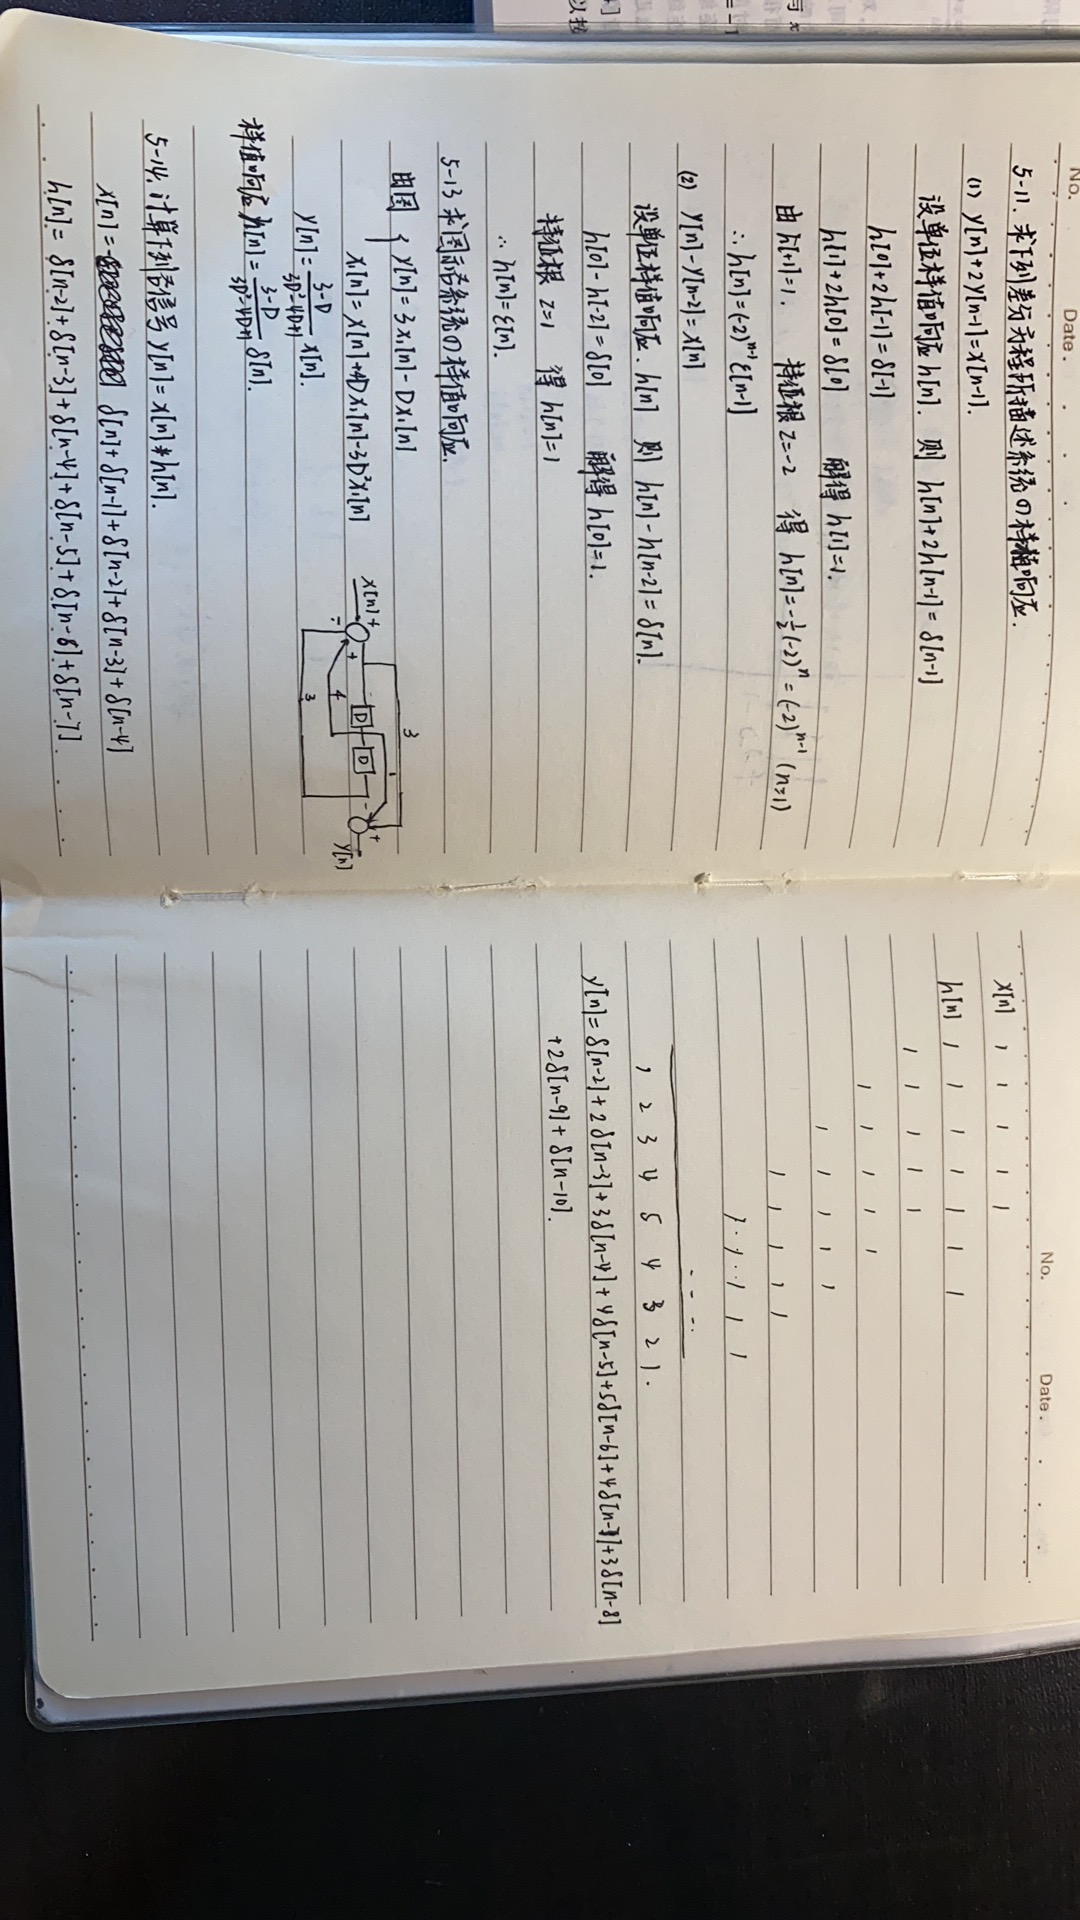 No.
Date.
5-11. 求下列差分方程所描述系统の样值响应.
(1) y[n]+2y[n-1]=x[n-1].
设单位样值响应 h[n]. 则 h[n]+2h[n-1]=δ[n-1]
h[0]+2h[-1]=δ[-1]
h[1]+2h[0]=δ[0] 解得 h[1]=1.
由 h[+1]=1. 特征根 z=-2 得 h[n]=-½(-2)ⁿ=(-2)ⁿ⁻¹ (n≥1)
∴ h[n]=(-2)ⁿ⁻¹ε[n-1]
(2) y[n]-y[n-2]=x[n]
设单位样值响应. h[n] 则 h[n]-h[n-2]=δ[n].
h[0]-h[-2]=δ[0] 解得 h[0]=1.
特征根 z=1 得 h[n]=1
∴ h[n]=ε[n].
5-13 求图示系统の样值响应.
由图 { y[n]=3x₁[n]-Dx₁[n]
x₁[n]=x[n]+4Dx₁[n]-3D²x₁[n]
y[n]=(3-D)/(3D²-4D+1) x[n].
样值响应 h[n]=(3-D)/(3D²-4D+1) δ[n].
3
1
x[n] + - + D D - + y[n]
4
3
5-14. 计算下列各信号 y[n]=x[n]*h[n].
x[n]= δ[n]+δ[n-1]+δ[n-2]+δ[n-3]+δ[n-4]
h[n]= δ[n-2]+δ[n-3]+δ[n-4]+δ[n-5]+δ[n-6]+δ[n-7].
No.
Date.
x[n] 1 1 1 1 1
h[n] 1 1 1 1 1 1 1
1 1 1 1 1
1 1 1 1 1
1 1 1 1 1
1 1 1 1 1
1 1 1 1 1
1 2 3 4 5 4 3 2 1.
y[n]=δ[n-2]+2δ[n-3]+3δ[n-4]+4δ[n-5]+5δ[n-6]+4δ[n-7]+3δ[n-8]
+2δ[n-9]+δ[n-10].